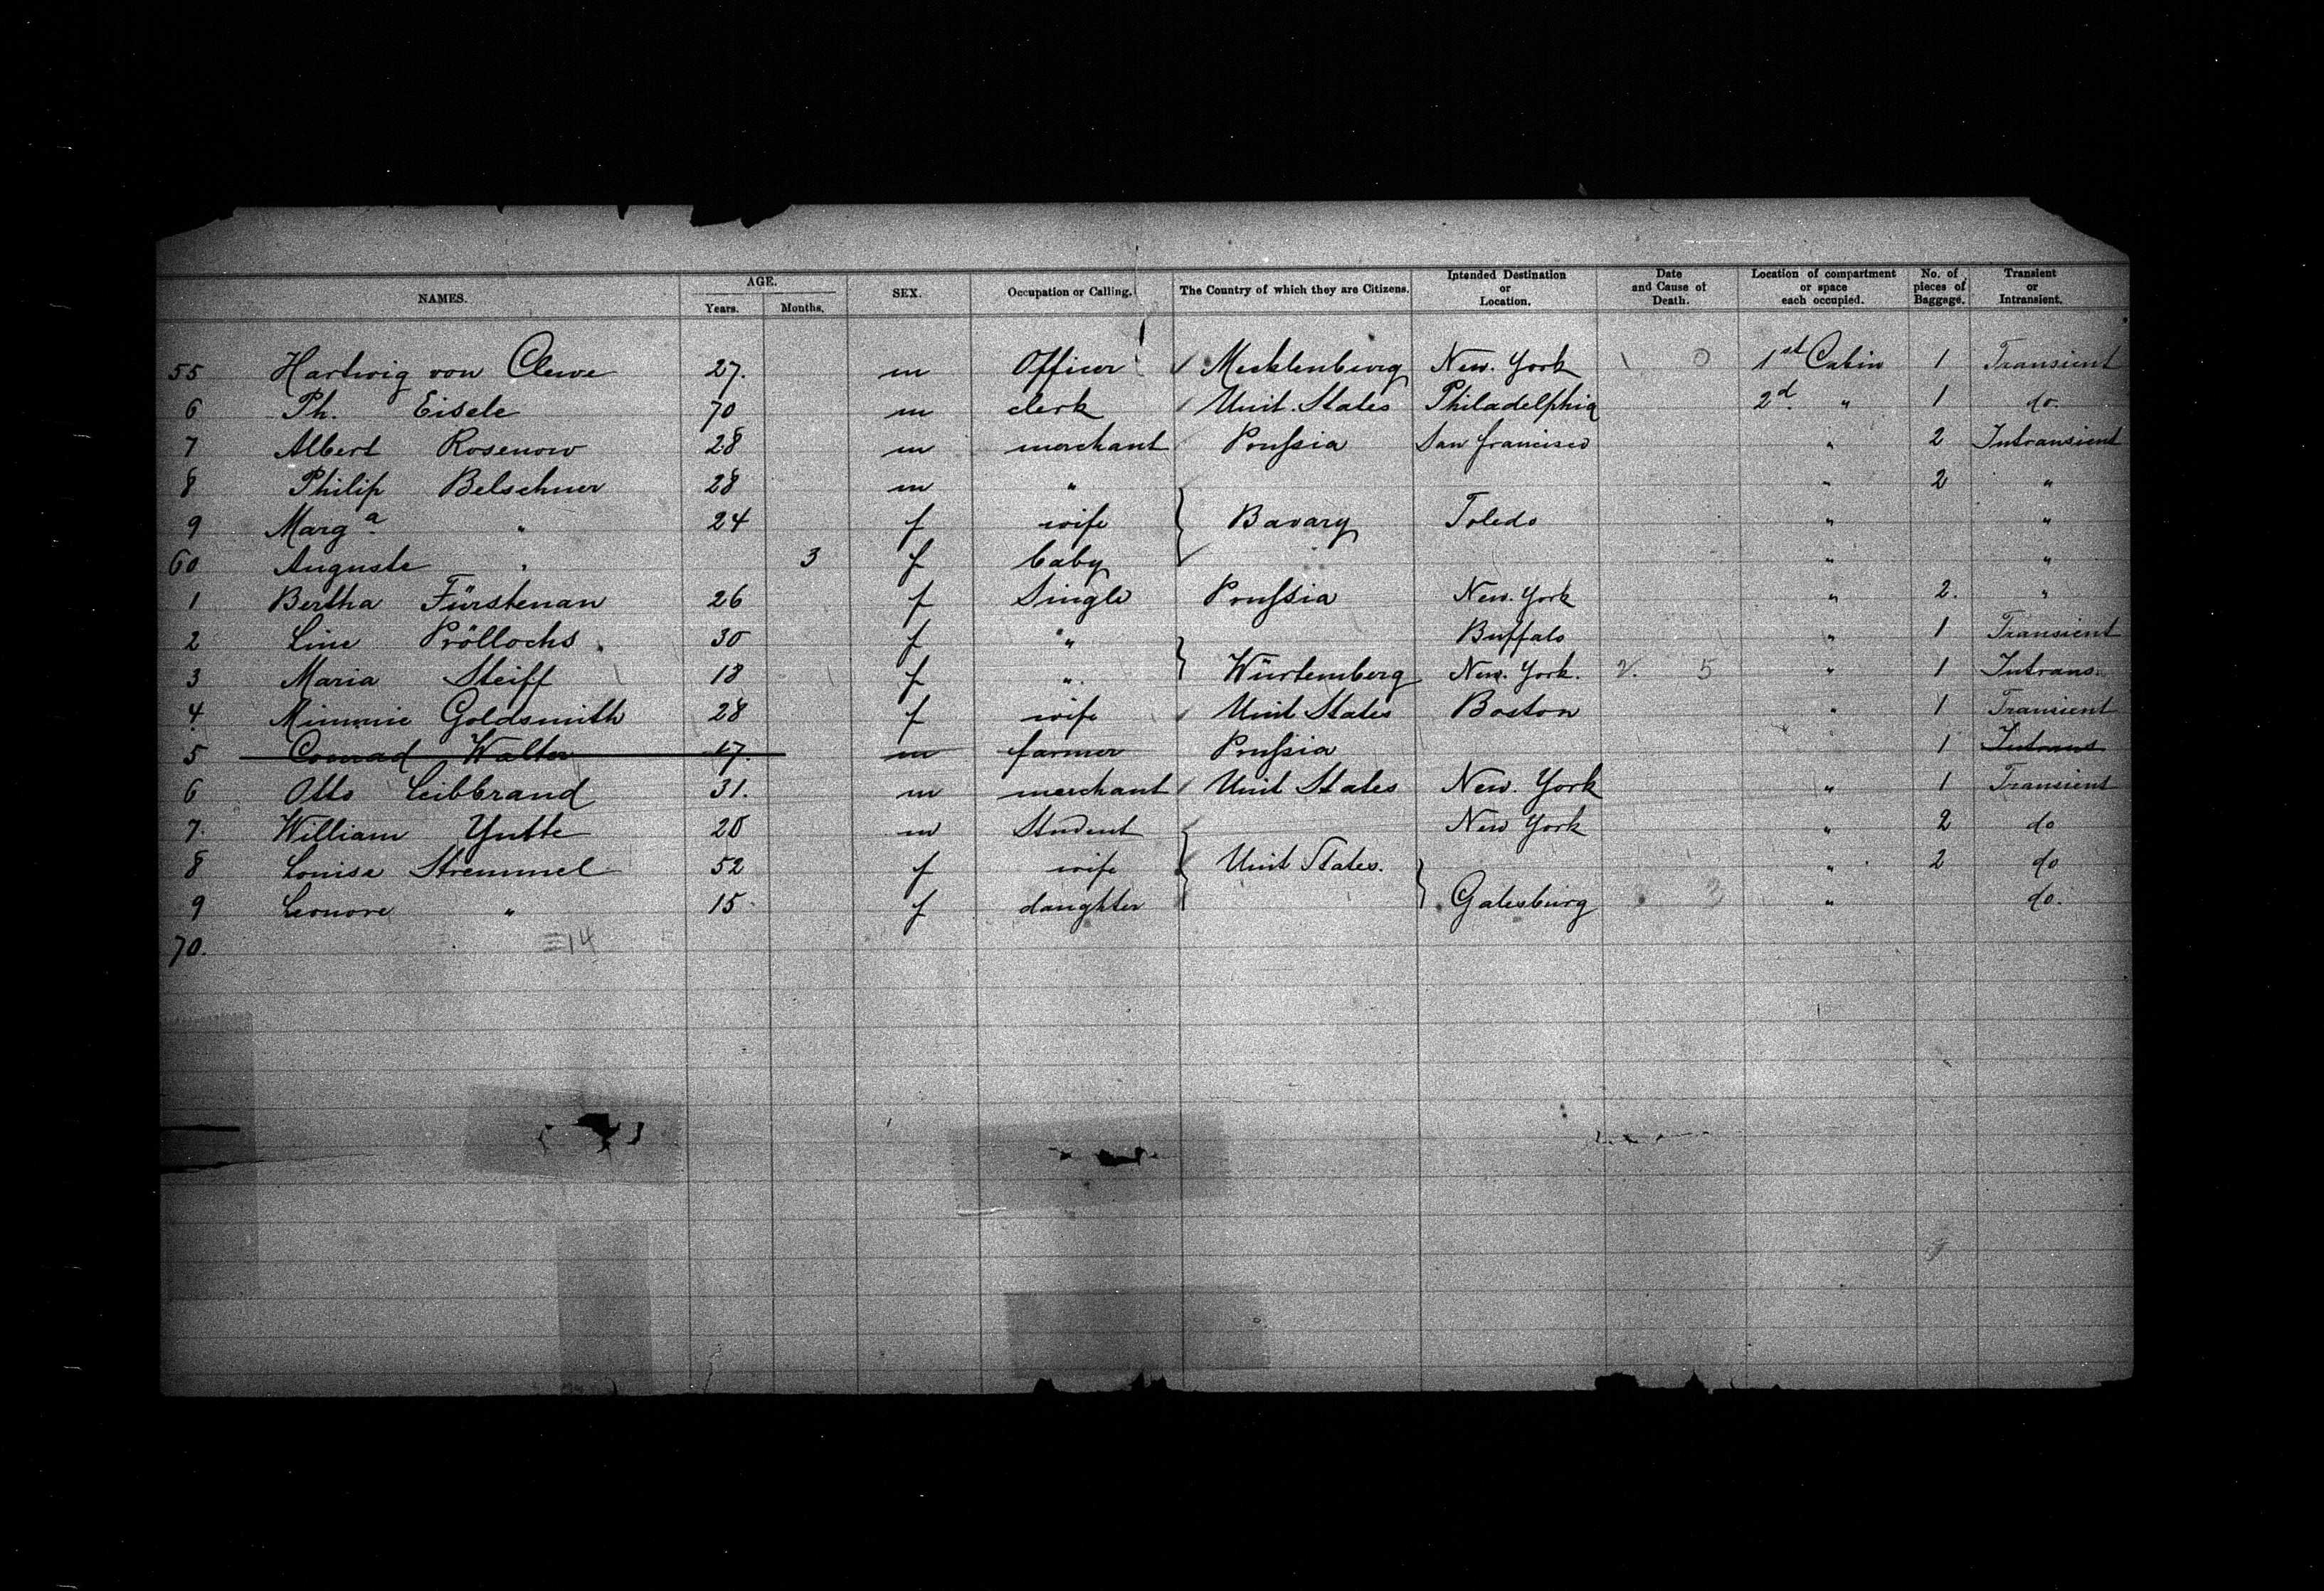 NAMES. AGE. Years. Months. SEX. Occupation or Calling. The Country of which they are Citizens. Intended Destination or Location. Date and Cause of Death. Location of compartment or space each occupied. No. of pieces of Baggage. Transient or Intransient.
55 Hartwig von Clewe 27. m Officer Mecklenburg New. York 0 1st Cabin 1 Transient
6 Ph. Eisele 70 m clerk Unit. States Philadelphia 2d. " 1 do.
7 Albert Rosenow 28 m merchant Prußia San francisco " 2 Intransient
8 Philip Belschner 28 m " " 2 "
9 Marga. " 24 f wife Bavary Toledo " "
60 Auguste " 3 f baby " "
1 Bertha Fürstenau 26 f Single Prußia New. York " 2. "
2 Line Pröllochs. 30 f " Buffalo " 1 Transient
3 Maria Steiff 18 f ". Würtemberg New. York. 2. 5 " 1 Intrans.
4. Minnie Goldsmith 28 f wife Unit States Boston " 1 Transient
5 Conrad Walter 17. m farmer Prußia 1 Intrans
6 Otto Leibbrand 31. m merchant Unit States New. York " 1 Transient
7. William Yutte 20 m Student New York " 2 do
8 Louise Stremmel 52 f wife Unit States. " 2 do
9 Leonore " 15 f daughter Galesburg 3 " do.
70. 14